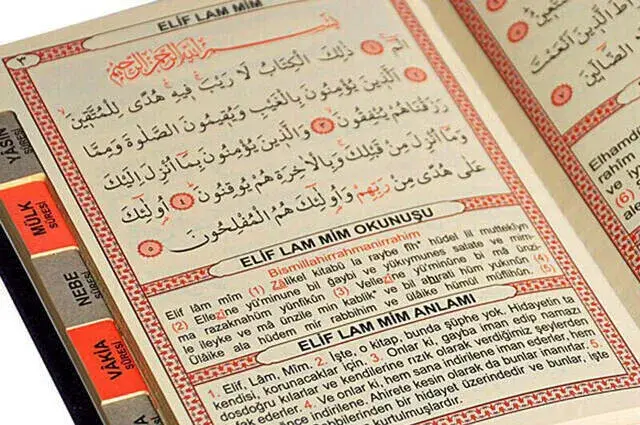 ELİF LAM MİM
٣
بسم الله الرحمن الرحيم
الٓمٓ ١ ذٰلِكَ الْكِتَابُ لَا رَيْبَ فِيهِ هُدًى لِلْمُتَّقِينَ
٢ الَّذِينَ يُؤْمِنُونَ بِالْغَيْبِ وَيُقِيمُونَ الصَّلٰوةَ وَمِمَّا
رَزَقْنَاهُمْ يُنْفِقُونَ ٣ وَالَّذِينَ يُؤْمِنُونَ بِمَا أُنْزِلَ إِلَيْكَ
وَمَا أُنْزِلَ مِنْ قَبْلِكَ وَبِالْاٰخِرَةِ هُمْ يُوقِنُونَ ٤ أُولٰئِكَ
عَلٰى هُدًى مِنْ رَبِّهِمْ وَأُولٰئِكَ هُمُ الْمُفْلِحُونَ ٥
ELİF LAM MİM OKUNUŞU
Bismillahirrahmanirrahim
Elif lâm mîm (1) Zâlikel kitabü la raybe fîh* hüdel lil müttekîyn
(2) Ellezîne yü'minune bil ğaybi ve yükıymunes salate ve mim-
ma razaknâhüm yünfikün (3) Vellezîne yü'minûne bi mâ ünzi-
le ileyke ve mâ ünzile min kablik* ve bil ahırati hüm yukınûn (4)
Ülâike ala hüdem mir rabbihim ve ülâike hümül müflihûn. (5)
ELİF LAM MİM ANLAMI
1. Elif, Lâm, Mîm. 2. İşte, o kitap, bunda şüphe yok. Hidayetin ta
kendisi, korunacaklar için. 3. Onlar ki, gayba iman edip namazı
dosdoğru kılarlar ve kendilerine rızık olarak verdiğimiz şeylerden
ederler. 4. Ve onlar ki, hem sana indirilene iman ederler, hem
önce indirilene. Ahirete kesin olarak da bunlar inanırlar. 5.
Rabblerinden bir hidayet üzerindedir ve bunlar, işte
kurtulmuşlardır.
YÂSİN
SÛRESİ
MÜLK
SÛRESİ
NEBE
SÛRESİ
VAKIA
SÛRESİ
صِرَاطَ الَّذِينَ أَنْعَمْتَ
الضَّالِّينَ
Elhamd
rahim
(6)